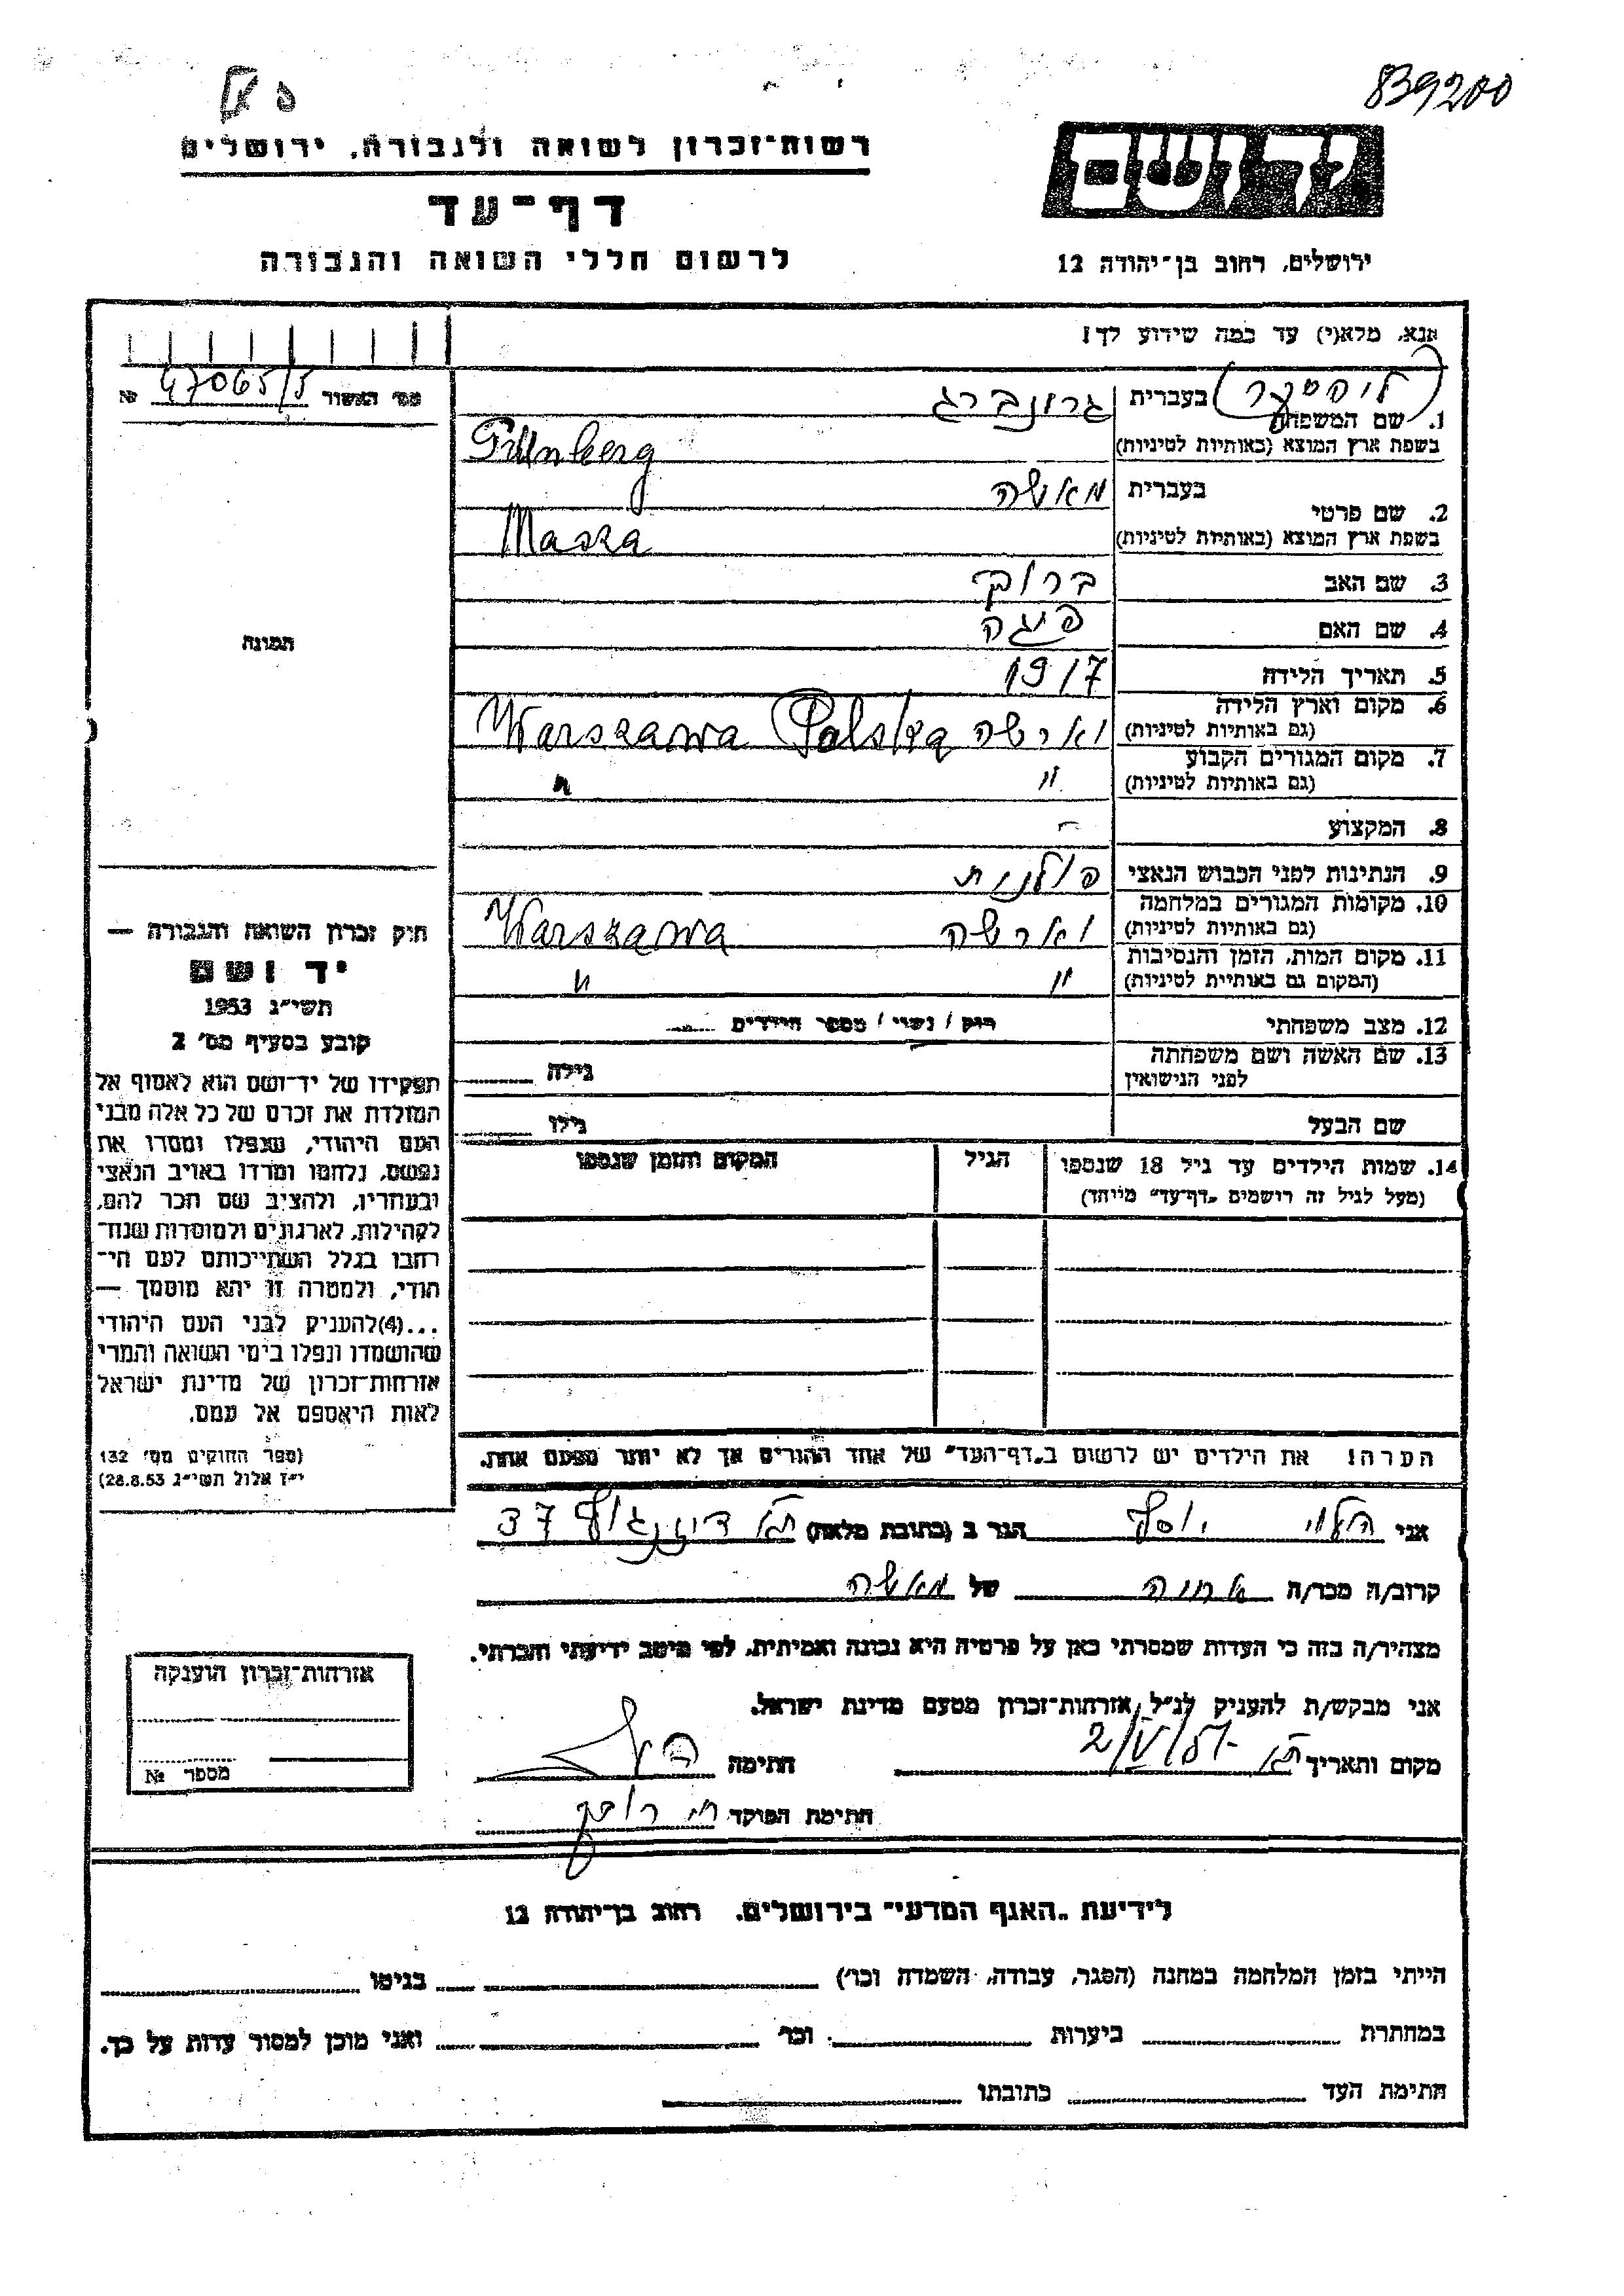 839200
רשות־זכרון לשואה ולגבורה, ירושלים
יד ושם
דף־עד
לרשום חללי השואה והגבורה
ירושלים, רחוב בן־יהודה 12
אנא, מלא(י) עד כמה שידוע לך!
מס׳ האשור 47065/5 №
1. שם המשפחה
בעברית גרונברג
בשפת ארץ המוצא (באותיות לטיניות) Grünberg
2. שם פרטי
בעברית מאשה
בשפת ארץ המוצא (באותיות לטיניות) Masza
3. שם האב ברוך
4. שם האם פיגה
5. תאריך הלידה 1917
6. מקום וארץ הלידה
(גם באותיות לטיניות) וארשה Warszawa Polska
7. מקום המגורים הקבוע
(גם באותיות לטיניות) " "
8. המקצוע -
9. הנתינות לפני הכבוש הנאצי פולנית
10. מקומות המגורים במלחמה
(גם באותיות לטיניות) וארשה Warszawa
11. מקום המות, הזמן והנסיבות
(המקום גם באותיות לטיניות) " "
12. מצב משפחתי רוק / נשוי / מספר הילדים
13. שם האשה ושם משפחתה
לפני הנישואין גילה
שם הבעל גילו
14. שמות הילדים עד גיל 18 שנספו הגיל המקום והזמן שנספו
(מעל לגיל זה רושמים „דף־עד” מיוחד)
הערה! את הילדים יש לרשום ב„דף־העד” של אחד ההורים אך לא יותר מפעם אחת.
התמונה
חוק זכרון השואה והגבורה —
יד ושם
תשי״ג 1953
קובע בסעיף מס׳ 2
תפקידו של יד־ושם הוא לאסוף אל
המולדת את זכרם של כל אלה מבני
העם היהודי, שנפלו ומסרו את
נפשם, נלחמו ומרדו באויב הנאצי
ובעוזריו, ולהציב שם וזכר להם,
לקהילות, לארגונים ולמוסדות שנח־
רבו בגלל השתייכותם לעם הי־
הודי, ולמטרה זו יהא מוסמך —
...(4)להעניק לבני העם היהודי
שהושמדו ונפלו בימי השואה והמרי
אזרחות־זכרון של מדינת ישראל
לאות היאספם אל עמם.
(ספר החוקים מס׳ 132
י״ז אלול תשי״ג 28.8.53)
אני הלוי יוסף הגר ב (כתובת מלאה) ת״א דיזנגוף 37
קרוב/ה מכר/ה של מאשה
מצהיר/ה בזה כי העדות שמסרתי כאן על פרטיה היא נכונה ואמיתית, לפי מיטב ידיעתי והכרתי.
אני מבקש/ת להעניק לנ״ל אזרחות־זכרון מטעם מדינת ישראל.
מקום ותאריך ת״א חתימה
חתימת הפוקד
אזרחות־זכרון הוענקה
מספר №
לידיעת „האגף המדעי” בירושלים. רחוב בן־יהודה 12
הייתי בזמן המלחמה במחנה (הסגר, עבודה, השמדה וכו׳) בגיטו
במחתרת ביערות וכו׳ ואני מוכן למסור עדות על כך.
חתימת העד כתובתו